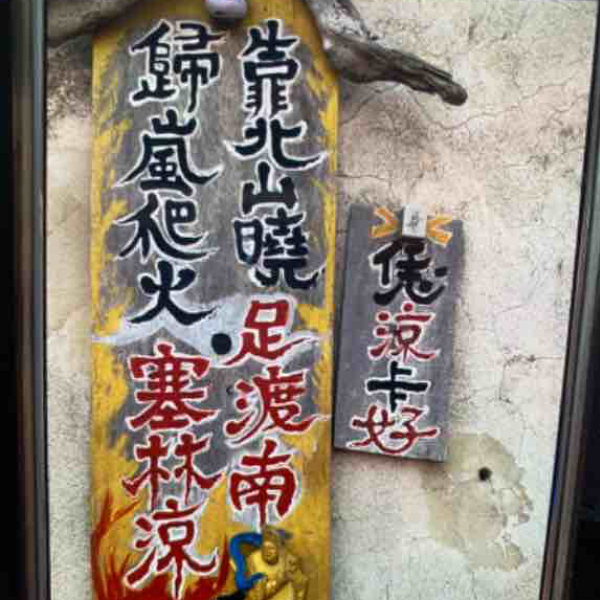 靠北山曉足渡南
歸嵐爬火塞林涼
恁涼卡好